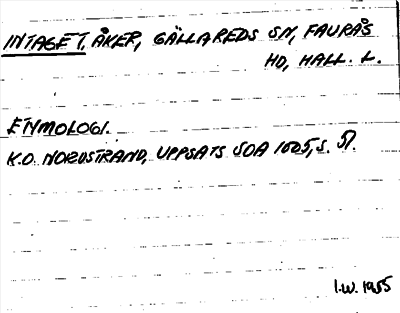 INTAGET, ÅKER, GÄLLAREDS SN, FAURÅS
HD, HALL. L.
ETYMOLOGI.
K.O. NORDSTRAND, UPPSATS SOA 1605, S. 51.
I.W. 1955